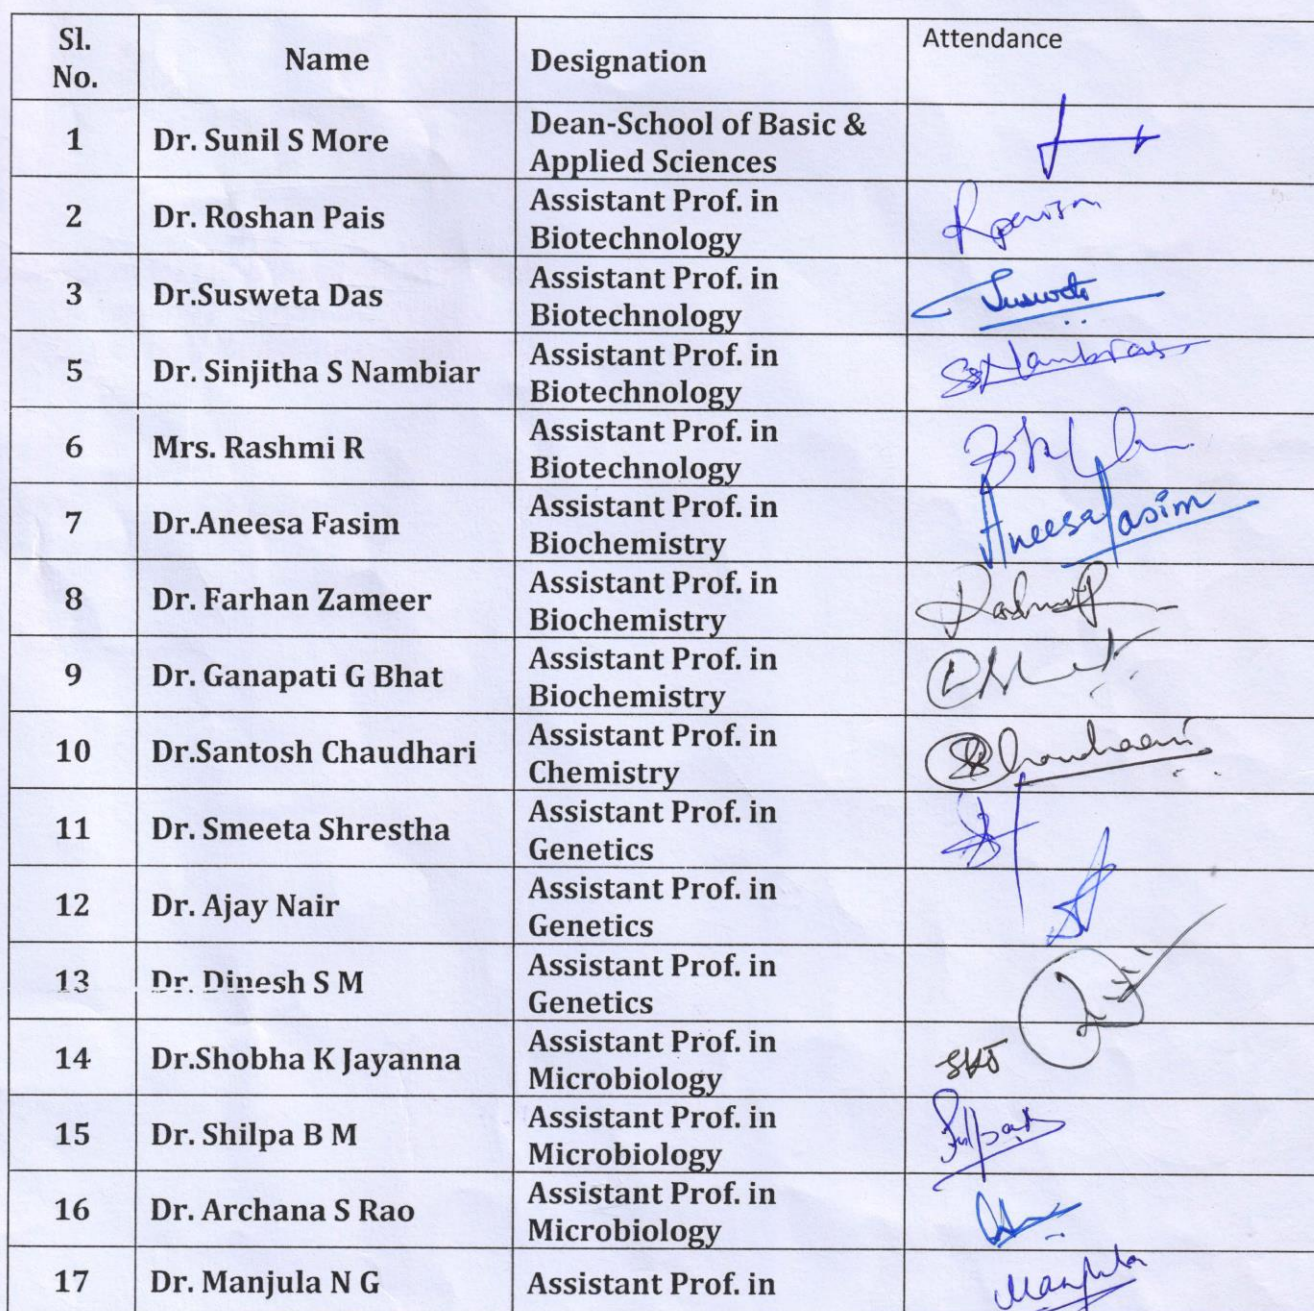 Sl. No. Name Designation Attendance
1 Dr. Sunil S More Dean-School of Basic & Applied Sciences
2 Dr. Roshan Pais Assistant Prof. in Biotechnology
3 Dr.Susweta Das Assistant Prof. in Biotechnology Susweta
5 Dr. Sinjitha S Nambiar Assistant Prof. in Biotechnology
6 Mrs. Rashmi R Assistant Prof. in Biotechnology
7 Dr.Aneesa Fasim Assistant Prof. in Biochemistry Aneesa Fasim
8 Dr. Farhan Zameer Assistant Prof. in Biochemistry
9 Dr. Ganapati G Bhat Assistant Prof. in Biochemistry
10 Dr.Santosh Chaudhari Assistant Prof. in Chemistry
11 Dr. Smeeta Shrestha Assistant Prof. in Genetics
12 Dr. Ajay Nair Assistant Prof. in Genetics
13 Dr. Dinesh S M Assistant Prof. in Genetics
14 Dr.Shobha K Jayanna Assistant Prof. in Microbiology SKJ
15 Dr. Shilpa B M Assistant Prof. in Microbiology
16 Dr. Archana S Rao Assistant Prof. in Microbiology
17 Dr. Manjula N G Assistant Prof. in Manjula